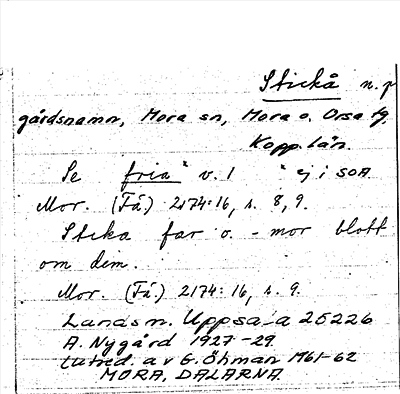 Stickå n. p
gårdsnamn, Mora sn, Mora o. Orsa tg,
Kopp. län.
Se fria v. 1 ej i SOA.
Mor. (Få) 2174:16, s. 8, 9.
Sticka far o. - mor blott
om dem.
Mor. (Få) 2174:16, s. 9.
Landsm. Uppsala 25226
A. Nygård 1927-29.
Utred. av G. Öhman 1961-62
MORA, DALARNA.